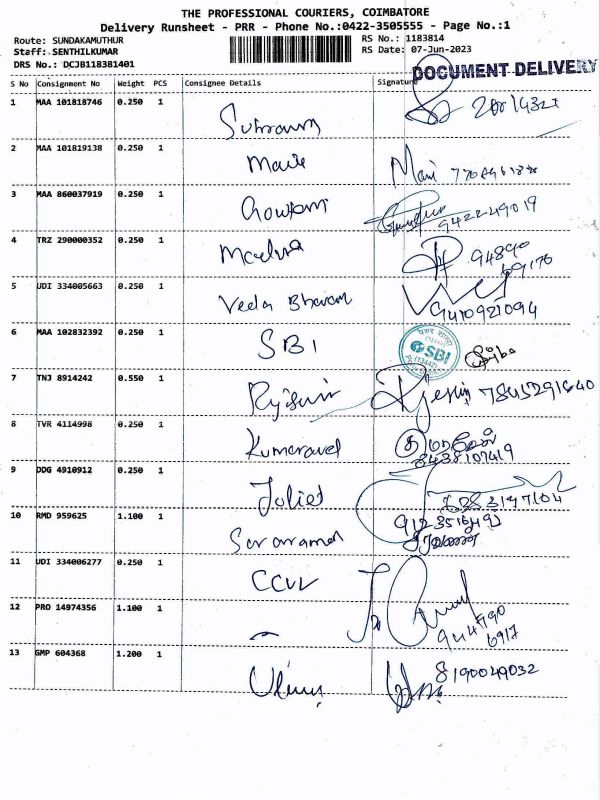 THE PROFESSIONAL COURIERS, COIMBATORE
Delivery Runsheet - PRR - Phone No.:0422-3505555 - Page No.:1
Route: SUNDAKAMUTHUR RS No.: 1183814
Staff: SENTHILKUMAR RS Date: 07-Jun-2023
DRS No.: DCJB118381401
DOCUMENT DELIVERY
S No Consignment No Weight PCS Consignee Details Signature
1 MAA 101818746 0.250 1
2 MAA 101819138 0.250 1 Mani
3 MAA 860037919 0.250 1 Gowtami 9422249019
4 TRZ 290000352 0.250 1 94890
69176
5 UDI 334005663 0.250 1 Veela Bhavan 9410921094
6 MAA 102832392 0.250 1 SBI SBI
7 TNJ 8914242 0.550 1 7845291640
8 TVR 4114998 0.250 1 Kumaravel
8438107419
9 DDG 4910912 0.250 1 Juliet
10 RMD 959625 1.100 1
11 UDI 334006277 0.250 1
12 PRO 14974356 1.100 1 944790
6917
13 GMP 604368 1.200 1 8190049032